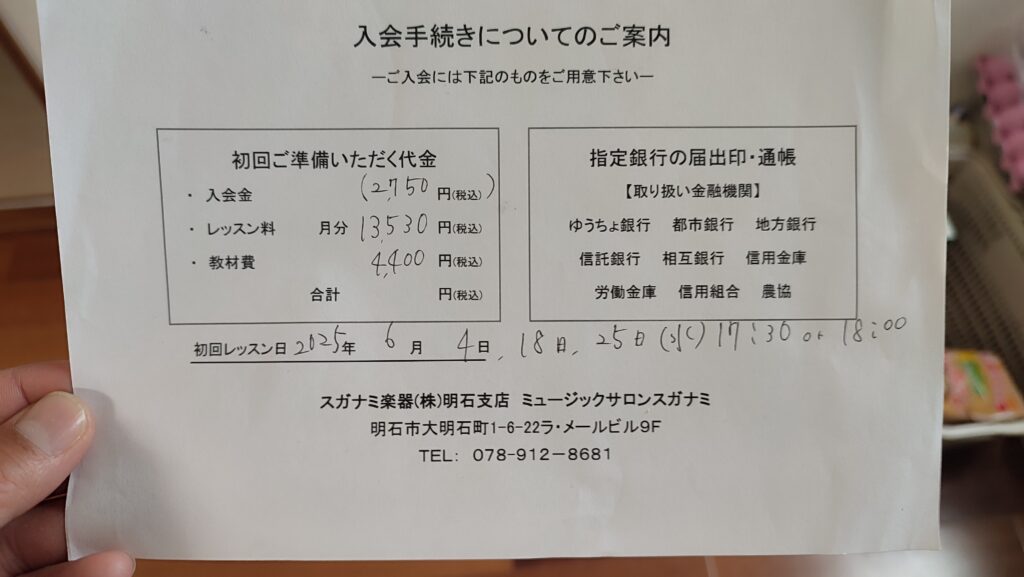 入会手続きについてのご案内
ーご入会には下記のものをご用意下さいー
初回ご準備いただく代金
・ 入会金 (2,750 円(税込))
・ レッスン料 月分 13,530 円(税込)
・ 教材費 4,400 円(税込)
合計 円(税込)
指定銀行の届出印・通帳
【取り扱い金融機関】
ゆうちょ銀行 都市銀行 地方銀行
信託銀行 相互銀行 信用金庫
労働金庫 信用組合 農協
初回レッスン日 2025年 6月 4日、18日、25日(水) 17:30 or 18:00
スガナミ楽器(株)明石支店 ミュージックサロンスガナミ
明石市大明石町1-6-22ラ・メールビル9F
TEL: 078-912-8681